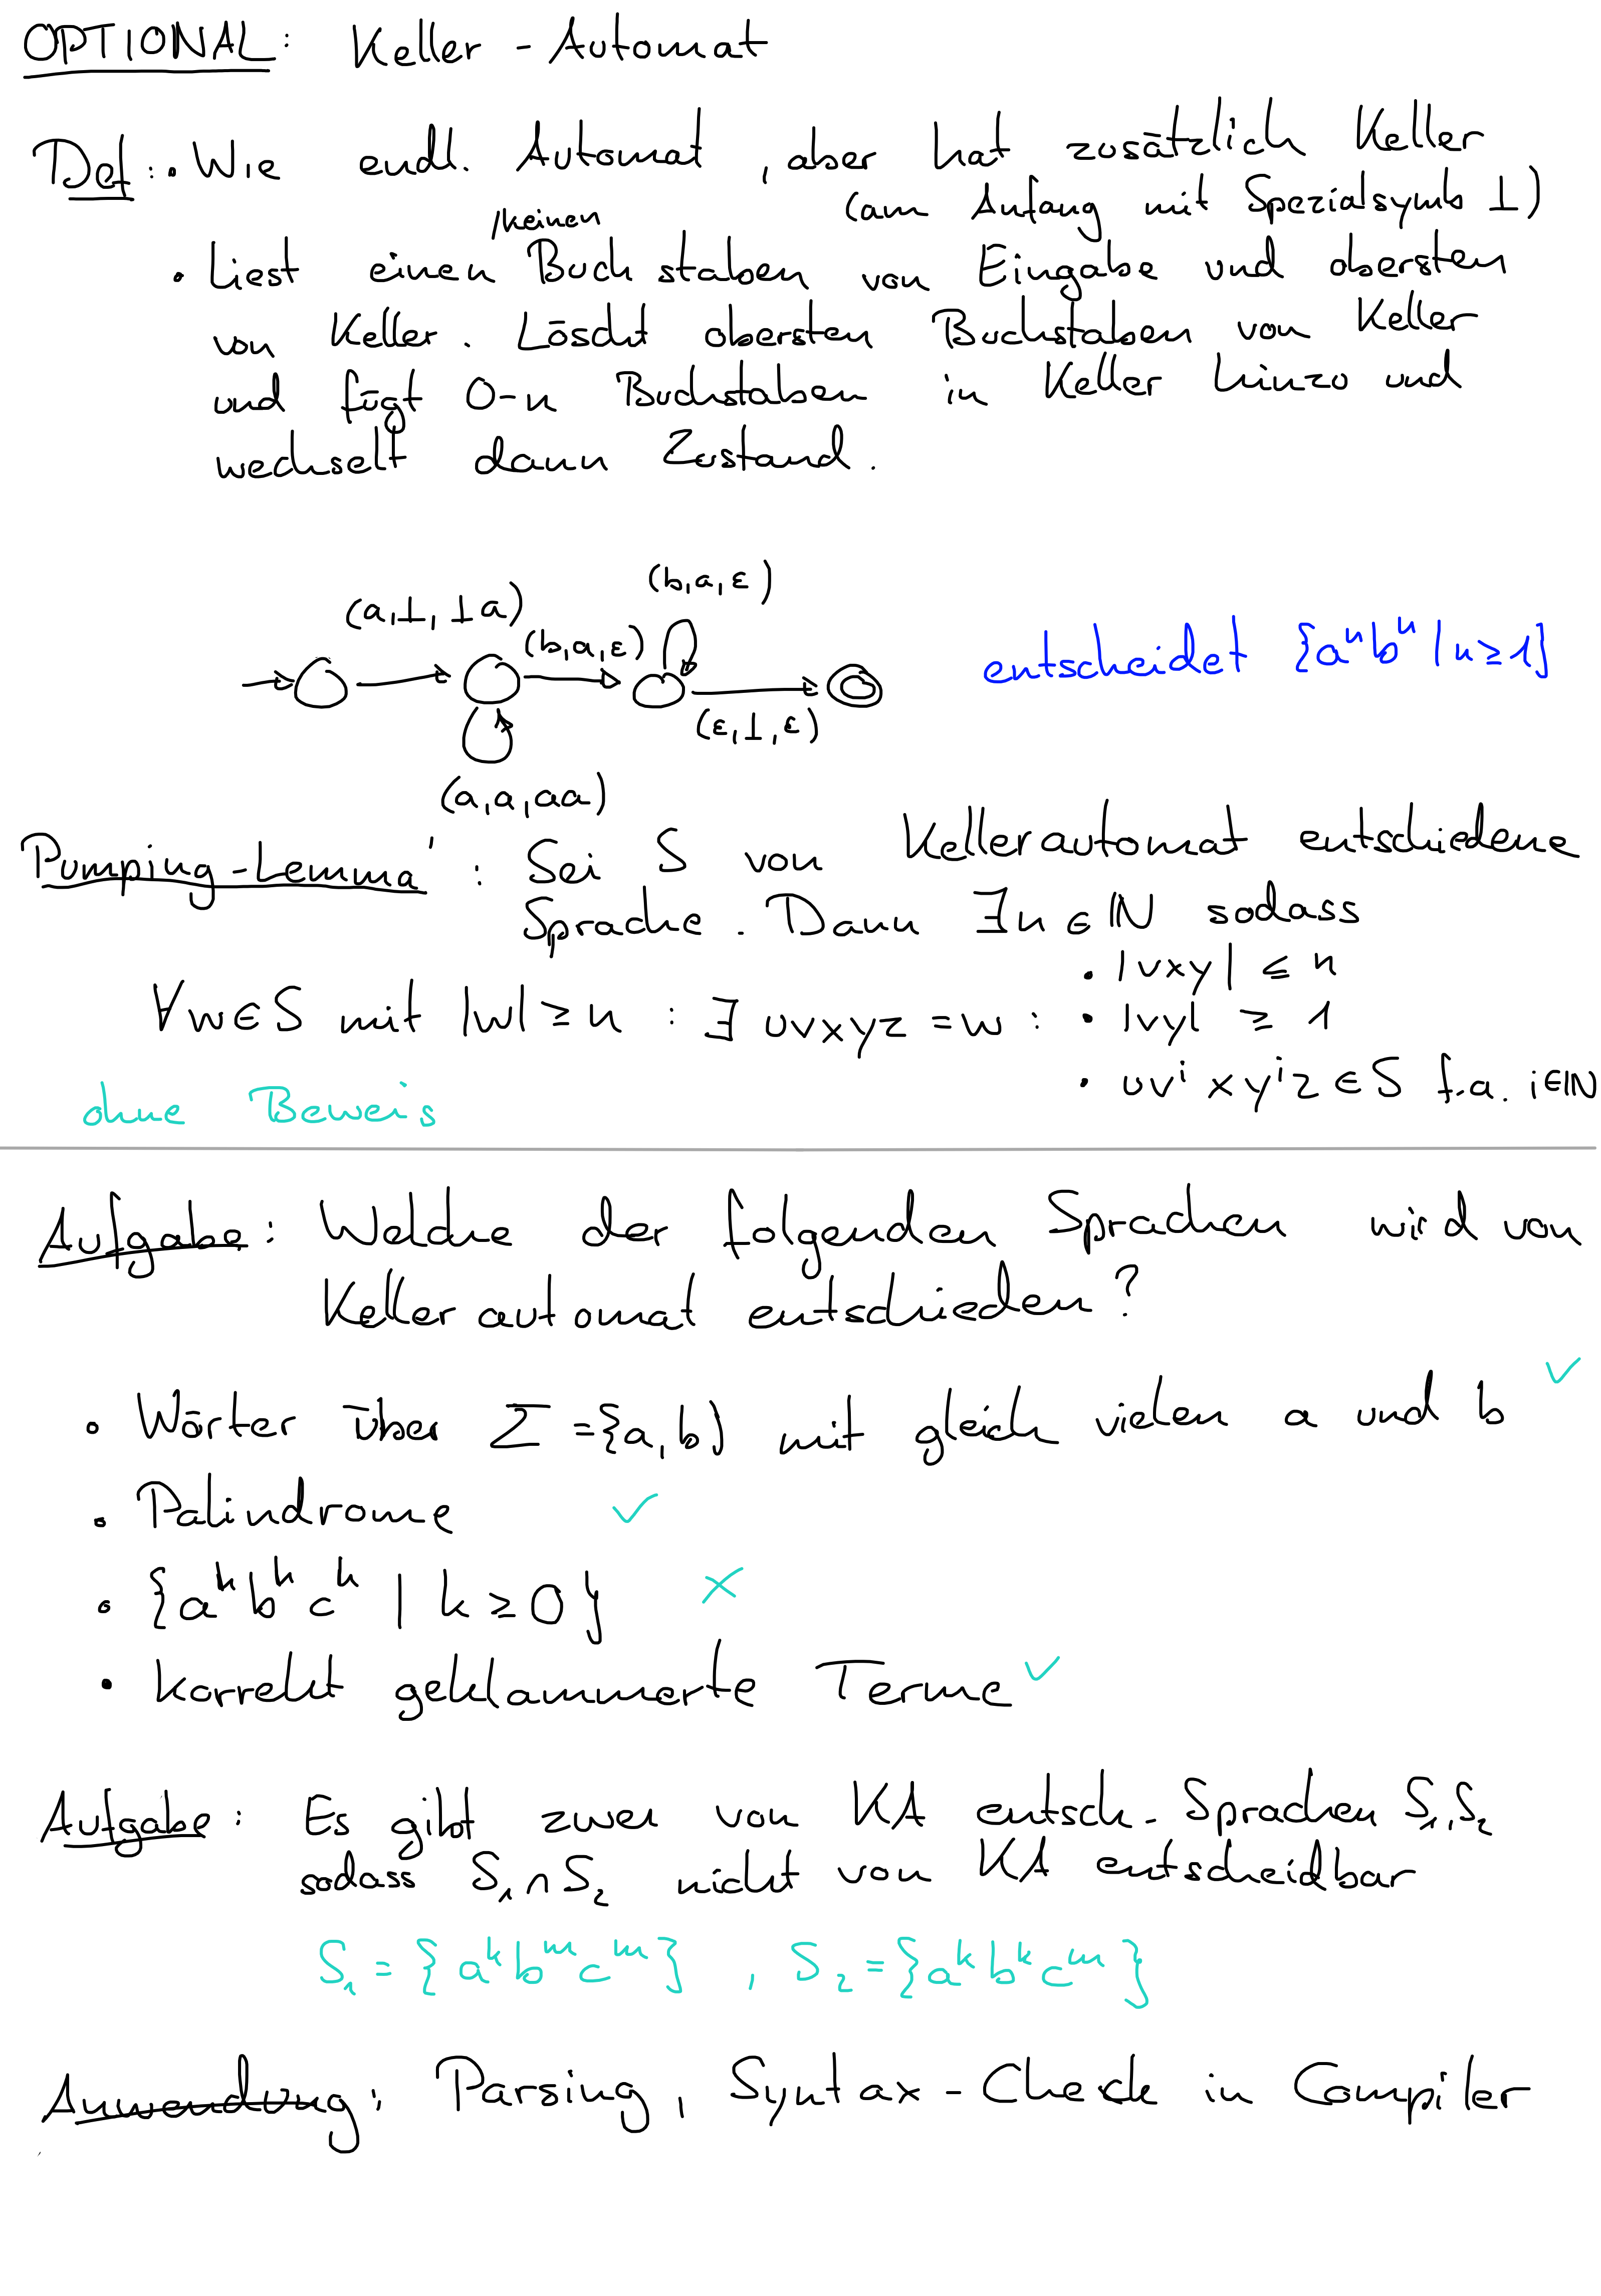 OPTIONAL: Keller-Automat
Def: • Wie endl. Automat, aber hat zusätzlich Keller
(am Anfang mit Spezialsymb ⊥)
/keinen
• Liest einen Buchstaben von Eingabe und obersten
von Keller. Löscht obersten Buchstaben von Keller
und fügt 0-n Buchstaben in Keller hinzu und
wechselt dann Zustand.
(b,a,ε)
(a,⊥,⊥a)
(b,a,ε)
entscheidet {aⁿbⁿ | n≥1}
(ε,⊥,ε)
(a,a,aa)
Pumping-Lemma': Sei S von Kellerautomat entschiedene
Sprache. Dann ∃n∈ℕ sodass
∀w∈S mit |w|≥n : ∃ uvxyz=w : • |vxy| ≤ n
• |vy| ≥ 1
• uvⁱxyⁱz∈S f.a. i∈ℕ
ohne Beweis
Aufgabe: Welche der folgenden Sprachen wird von
Kellerautomat entschieden?
• Wörter über Σ={a,b} mit gleich vielen a und b ✓
• Palindrome ✓
• {aᵏbᵏcᵏ | k≥0} ×
• Korrekt geklammerte Terme ✓
Aufgabe: Es gibt zwei von KA entsch. Sprachen S₁,S₂
sodass S₁∩S₂ nicht von KA entscheidbar
S₁={aᵏbᵐcᵐ}, S₂={aᵏbᵏcᵐ}
Anwendung: Parsing, Syntax-Check in Compiler